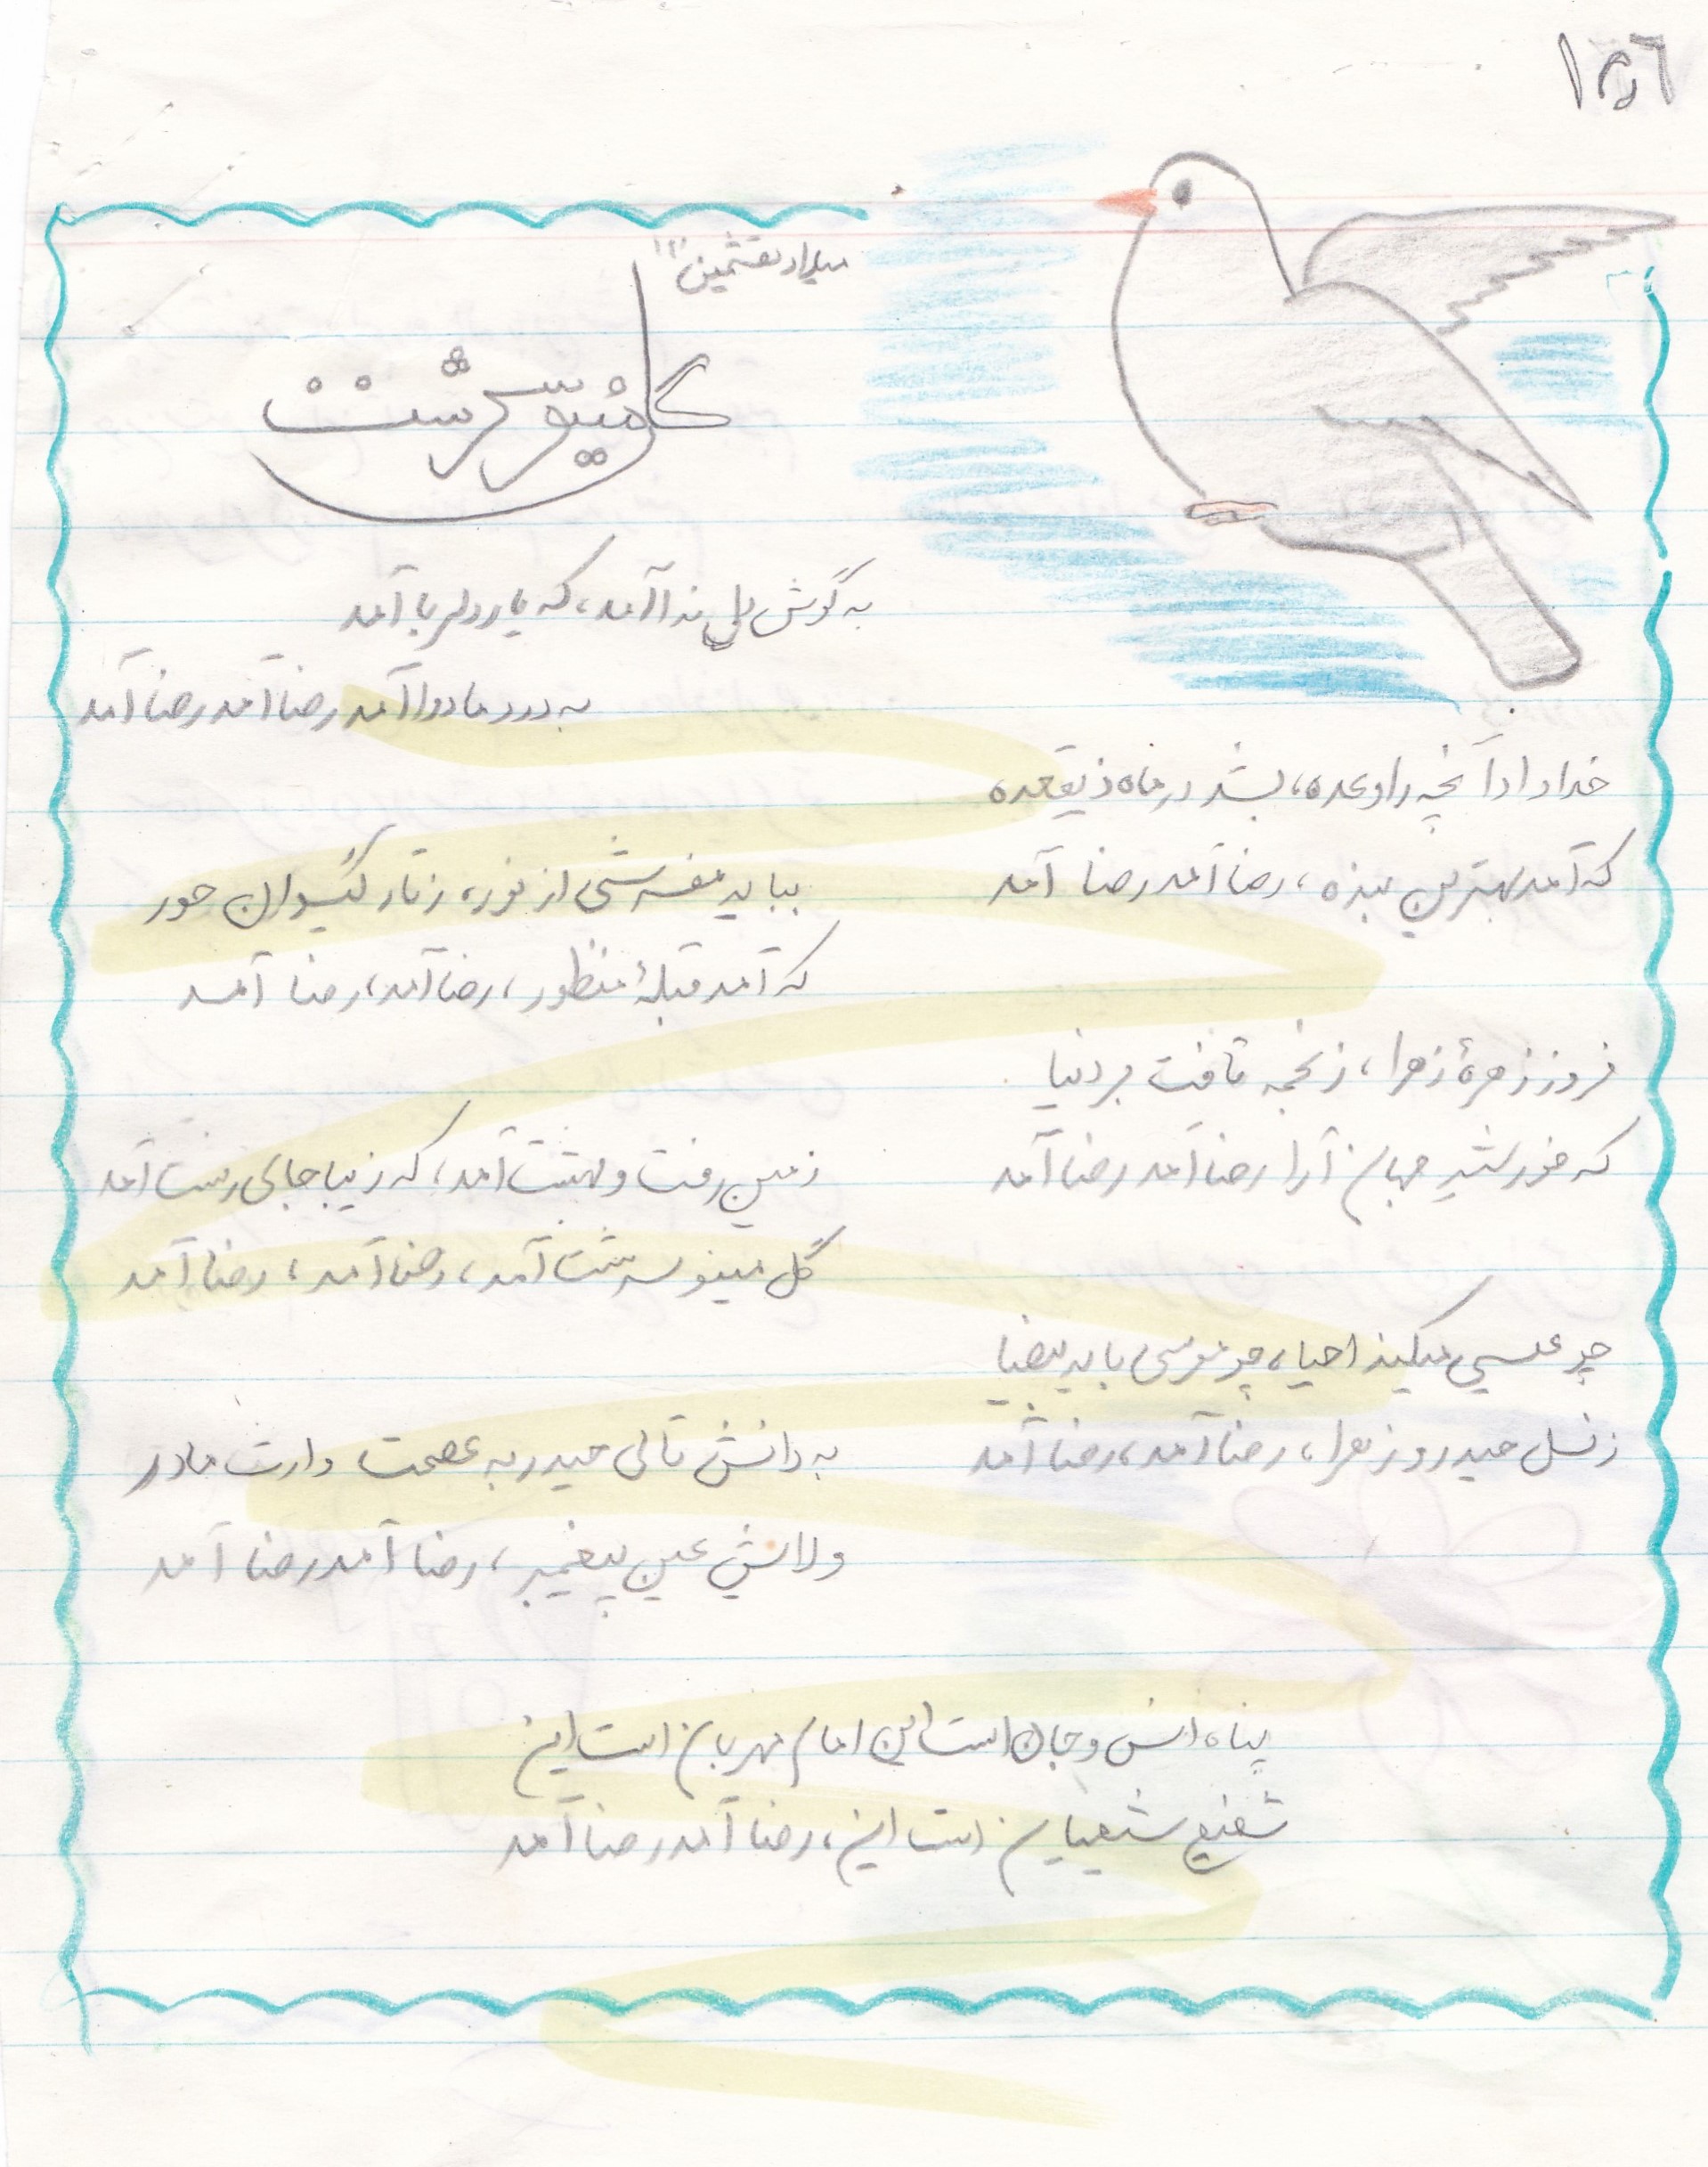 ۱۵۶
میلاد هشتمین
گل مینو سرشت
به گوش دل ندا آمد، که یار دلربا آمد
به درد ما دوا آمد رضا آمد رضا آمد
خدا داد آنچه را وعده، بشد در ماه ذیقعده
که آمد بهترین بنده، رضا آمد رضا آمد
بباید مفرشی از نور، ز تار گیسوان حور
که آمد قبلهٔ منظور، رضا آمد، رضا آمد
فروز زهرهٔ زهرا، ز نجمه تافت بر دنیا
که خورشید جهان آرا رضا آمد رضا آمد
زمین رفت و بهشت آمد، که زیبا جای زشت آمد
گل مینو سرشت آمد، رضا آمد، رضا آمد
چو عیسی میکند احیا، چو موسی با ید بیضیا
ز نسل حیدر و زهرا، رضا آمد، رضا آمد
به دانش تالی حیدر به عصمت وارث مادر
ولایش عین پیغمبر، رضا آمد رضا آمد
پناه انس و جان است این امام مهربان است این
شفیع شیعیان است این، رضا آمد رضا آمد